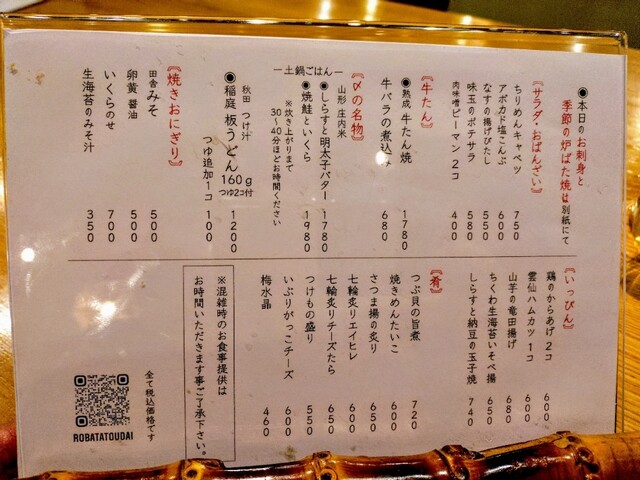 ●本日のお刺身と
季節の炉ばた焼は別紙にて
〘サラダ・おばんざい〙
ちりめんキャベツ 750
アボカド塩こんぶ 600
なすの揚げびたし 550
味玉のポテサラ 580
肉味噌ピーマン2コ 400
〘牛たん〙
●熟成 牛たん焼 1780
牛バラの煮込み 680
〘〆の名物〙
山形 庄内米
―土鍋ごはん―
●しらすと明太子バター 1780
●焼鮭といくら 1980
※炊き上がりまで
30〜40分ほどお時間ください
秋田 つけ汁
●稲庭 板うどん 160g つゆ2コ付 1200
つゆ追加1コ 100
〘焼きおにぎり〙
田舎みそ 500
卵黄 醤油 500
いくらのせ 700
生海苔のみそ汁 350
〘いっぴん〙
鶏のからあげ2コ 600
雲仙ハムカツ1コ 600
山芋の竜田揚げ 680
ちくわ生海苔いそべ揚 650
しらすと納豆の玉子焼 740
〘肴〙
つぶ貝の旨煮 720
焼きめんたいこ 600
さつま揚の炙り 650
七輪炙りエイヒレ 600
七輪炙りチーズたら 650
つけもの盛り 550
いぶりがっこチーズ 600
梅水晶 460
※混雑時のお食事提供は
お時間いただきます事ご了承下さい。
全て税込価格です
ROBATATOUDAI